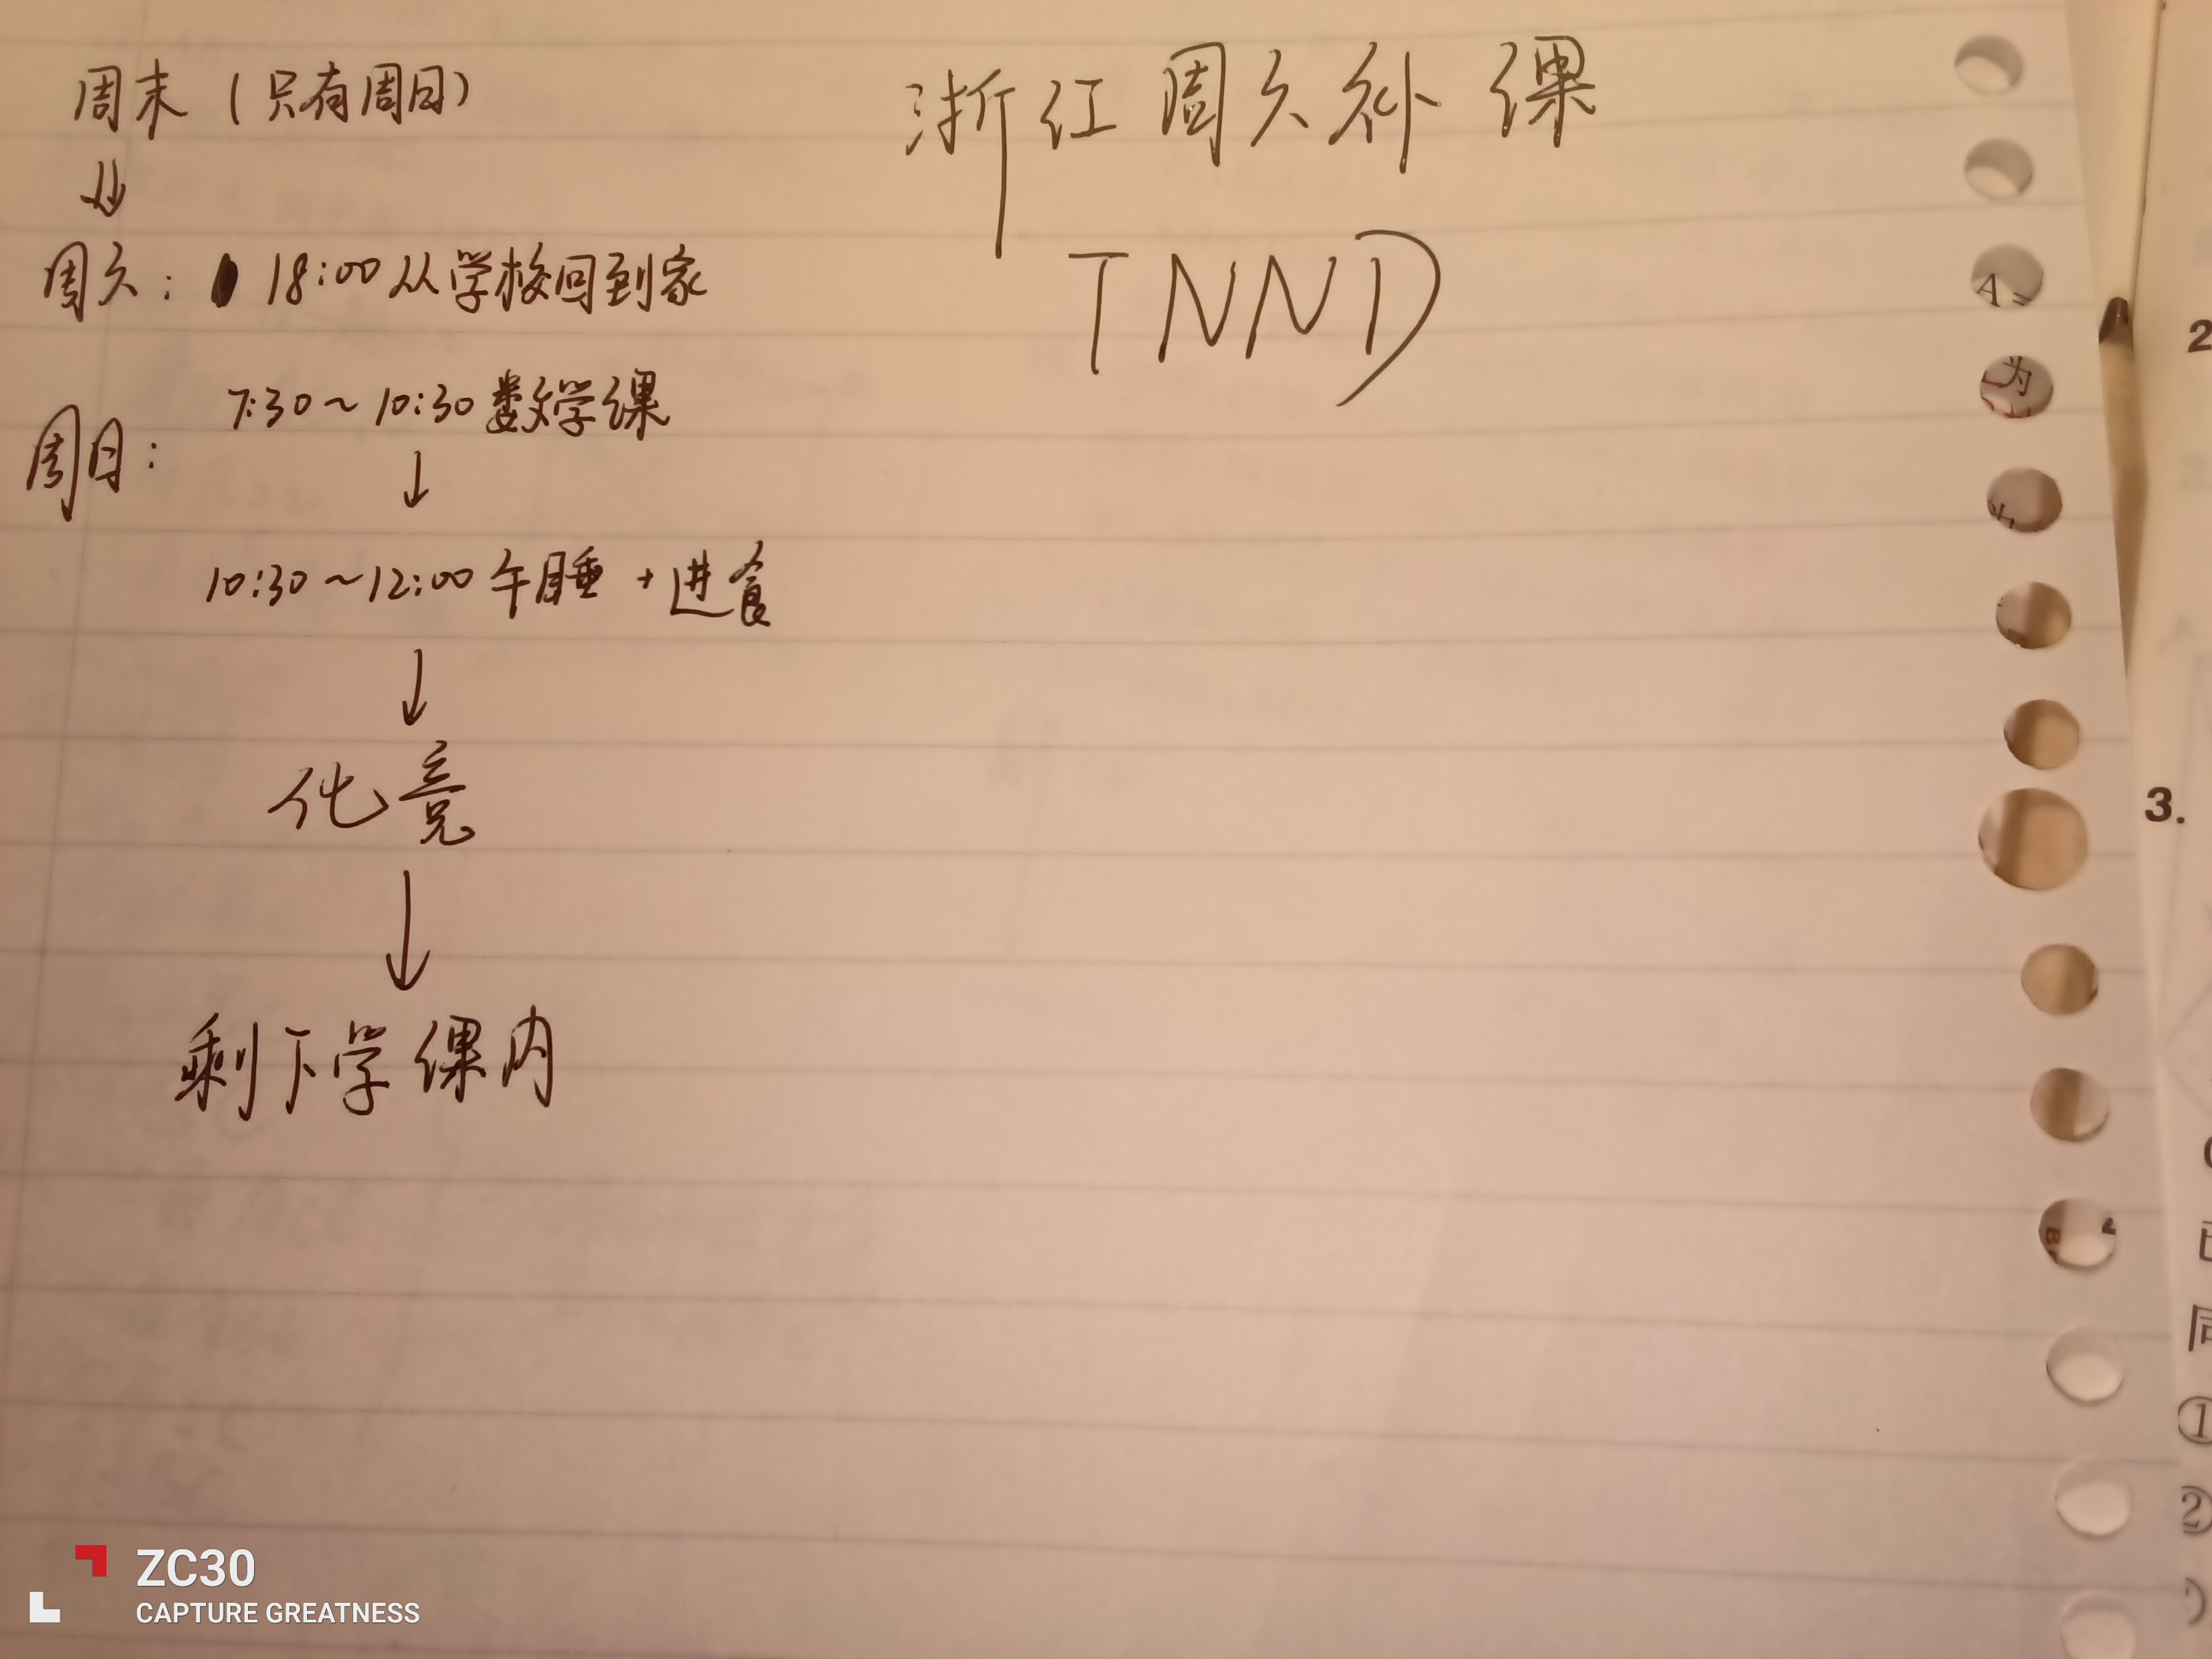 周末（只有周日）
周六： 18:00 从学校回到家
周日：
7:30～10:30 数学课
10:30～12:00 午睡 + 进食
化竞
剩下学课内
浙江周六补课
TNND
A =
为
2
3.
①
②
ZC30
CAPTURE GREATNESS